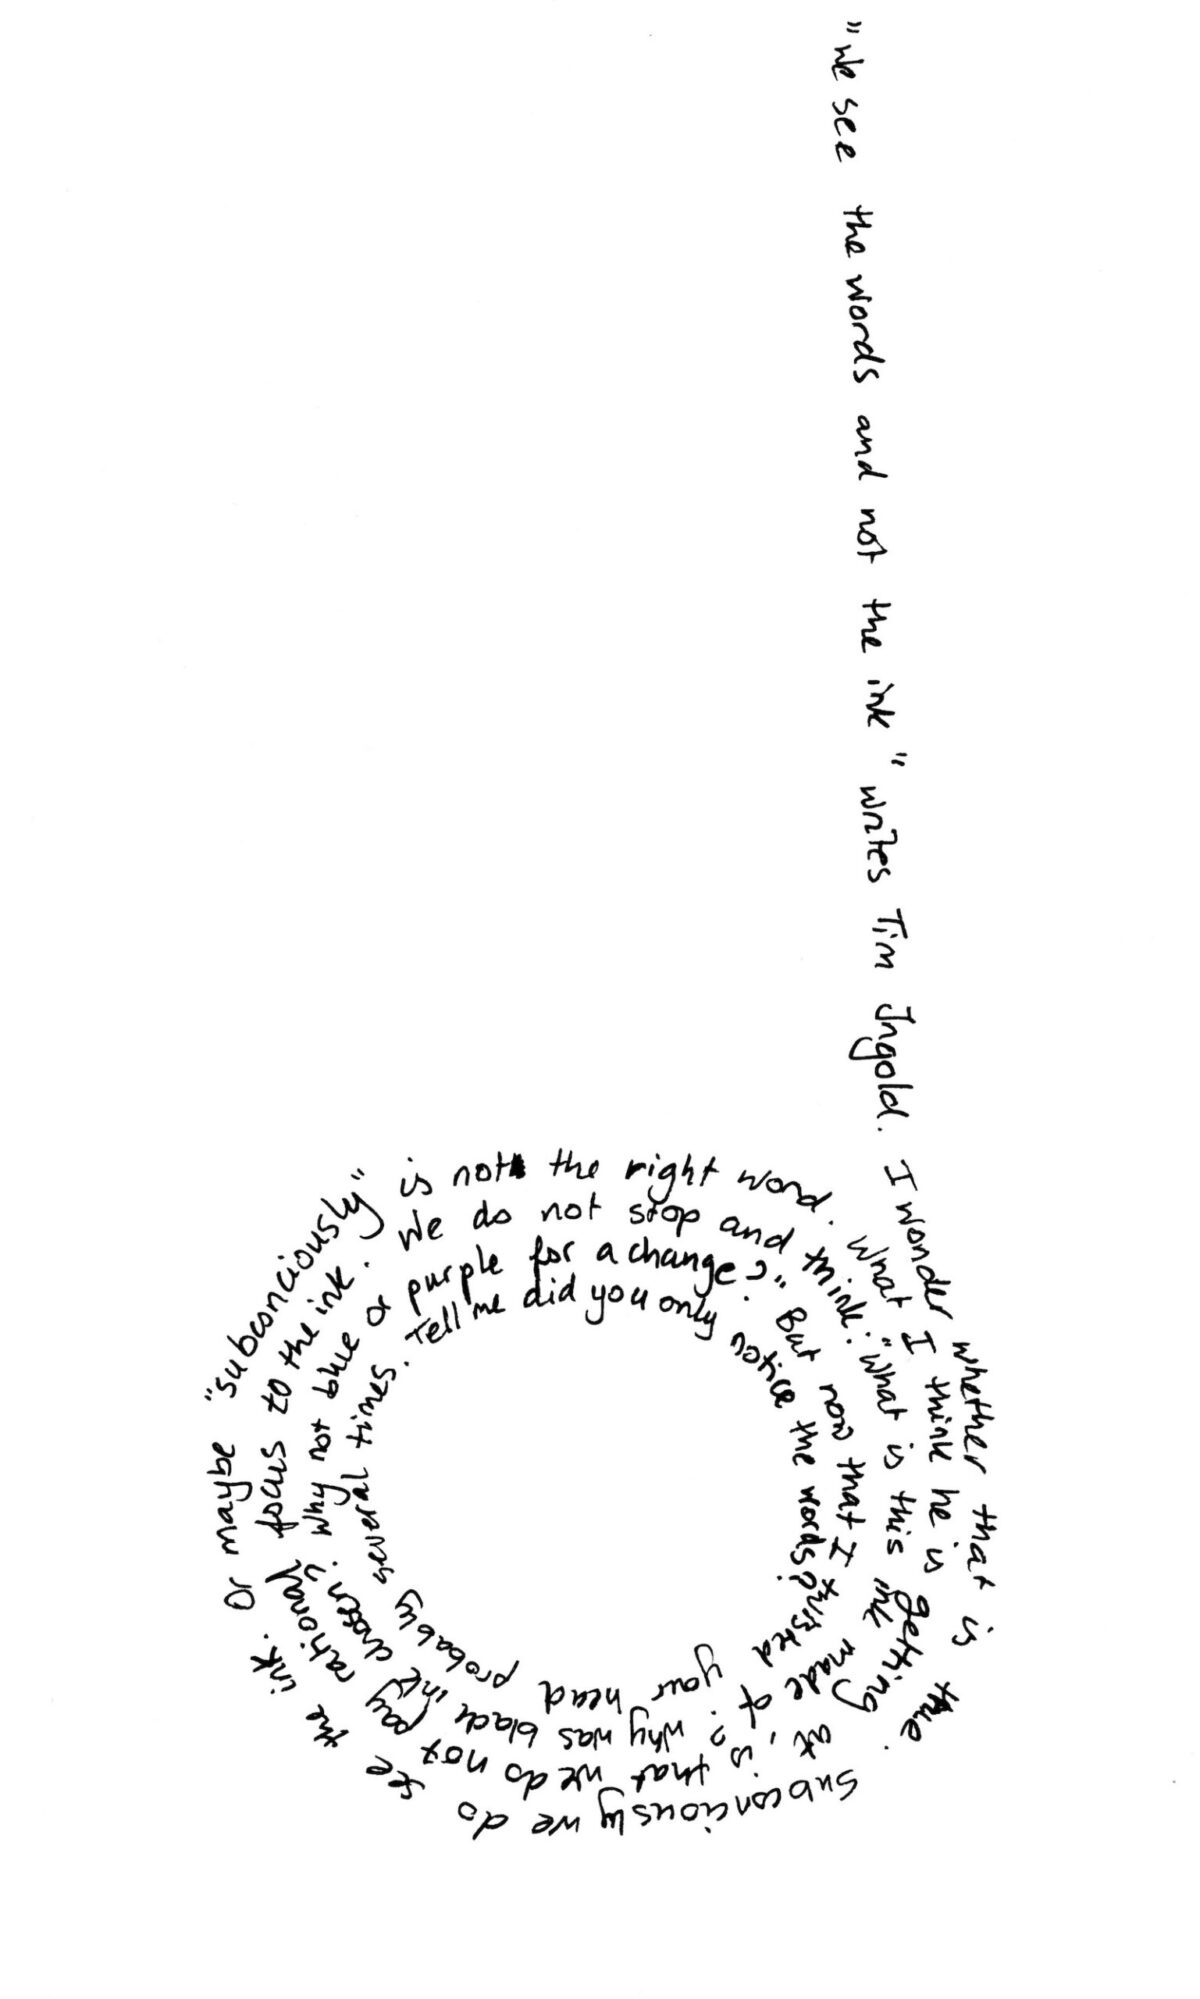 "we see the words and not the ink" writes Tim Ingold. I wonder whether that is true. Subconciously we do see the ink. Or maybe "subconciously" is not the right word. What I think he is getting at, is that we do not pay rational focus to the ink. We do not stop and think: "What is this ink made of? Why was black ink chosen? Why not blue or purple for a change?" But now that I twisted your head probably several times. Tell me did you only notice the words?